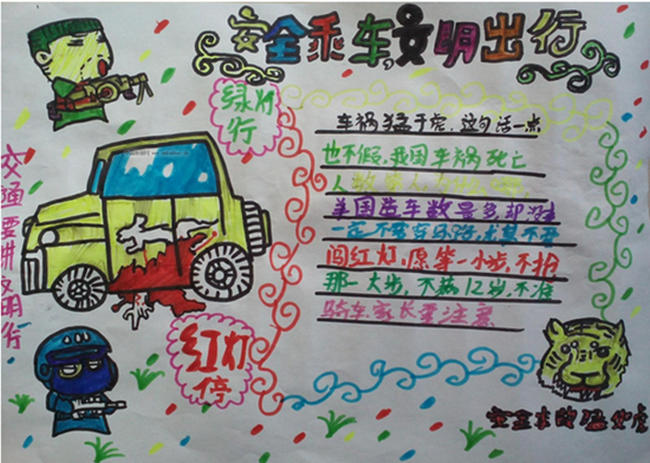 安全乘车,文明出行
绿灯
行
车祸猛于虎,这句话一点
也不假,我国车祸死亡
人数
美国造车数最多却没
一定不要穿马路,尤其不要
闯红灯,愿等一小步,不抢
那一大步,不满12岁,不准
骑车,家长要注意
红灯
停
交通要讲文明行
安全
猛如虎